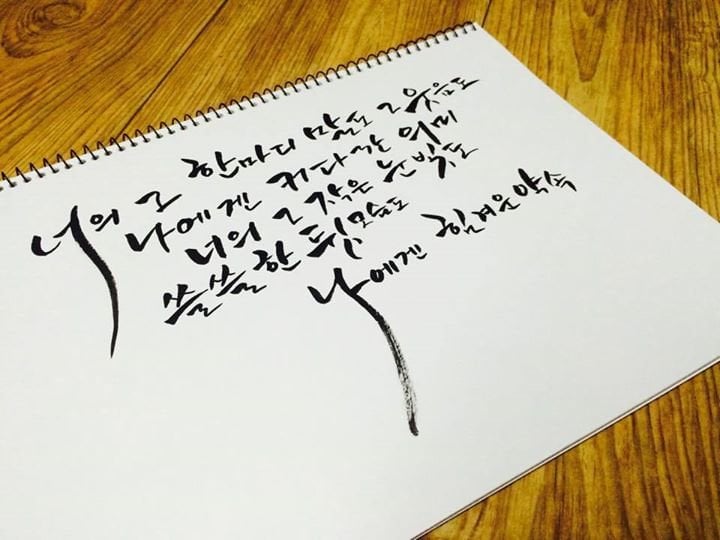 너의 그 한마디 말도 그 웃음도
나에겐 커다란 의미
너의 그 작은 눈빛도
쓸쓸한 뒷모습도
나에겐 힘겨운 약속